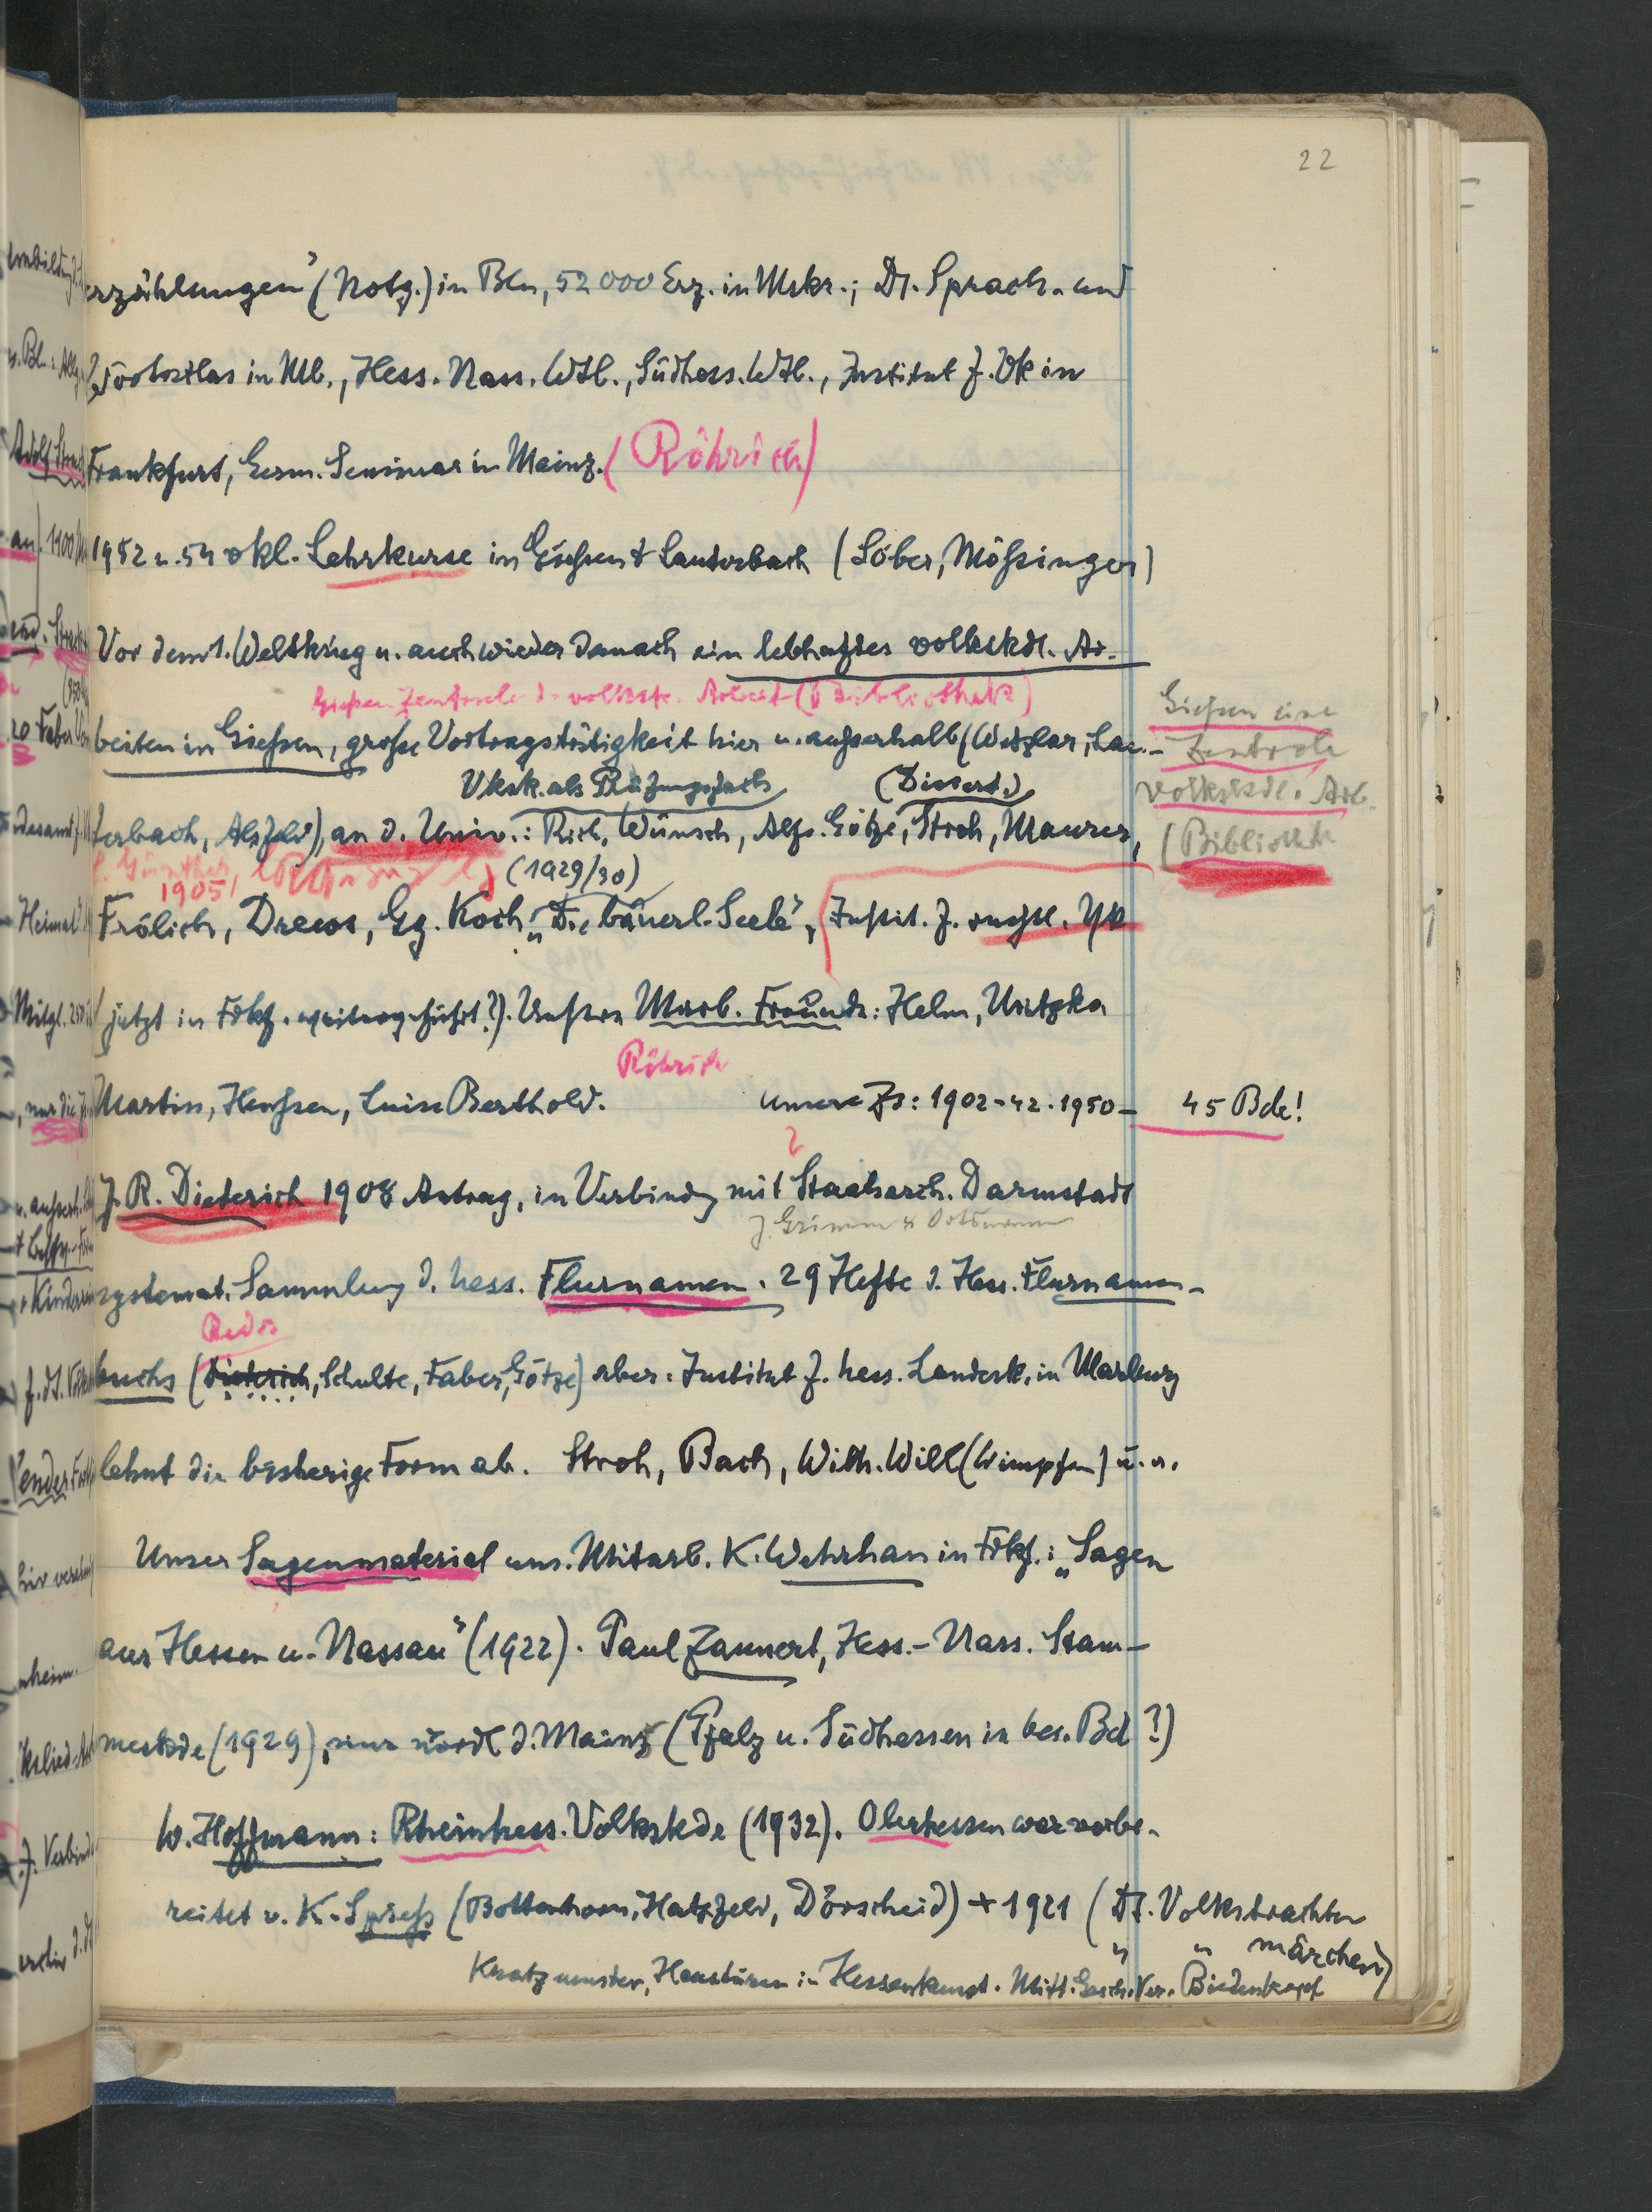 22
erzählungen" (Notg.) in Bln, 52000 Erz. in Mskr.; Dt. Sprach- und
Wortatlas in Mb., Hess. Nass. Wtb., Südhess. Wtb., Institut f. Vk in
Frankfurt, Germ. Seminar in Mainz. (Röhrich)
1952 u. 54 vkl. Lehrkurse in Gießen & Lauterbach (Löber, Mößinger)
Vor dem 1. Weltkrieg u. auch wieder danach ein lebhaftes volkskdl. Ar-
Gießen Zentrale d. volkskdl. Arbeit (Bibliothek)
beiten in Gießen, große Vortragstätigkeit hier u. außerhalb (Wetzlar, Lau-
Gießen eine
Zentrale
volkskdl. Arb.
(Bibliothek
Vksk. als Prüfungsfach (Dissert.)
terbach, Alsfeld), an d. Univ.: Rich. Wünsch, Alfr. Götze, Stroh, Maurer,
1905/ (1929/30)
Frölich, Drews, Gg. Koch „Die bäuerl. Seele", Instit. f. rechtl. Vk
(jetzt in Frkf. weitergeführt?). Unsere Marb. Freunde: Helm, Mitzka
Röhrich
Martin, Henßen, Luise Berthold. Unsere Zs: 1902-42. 1950- 45 Bde!
J. R. Dieterich 1908 Antrag, in Verbindg mit Staatsarch. Darmstadt
J. Grimm & Ortsnamen
systemat. Sammlung d. hess. Flurnamen. 29 Hefte d. Hess. Flurnamen-
buchs (Dieterich, Schulte, Faber, Götze) aber: Institut f. hess. Landesk. in Marburg
lehnt die bisherige Form ab. Stroh, Bach, Wilh. Will (Wimpfen) u. a.
Unser Sagenmaterial uns. Mitarb. K. Wehrhan in Frkf.: „Sagen
aus Hessen u. Nassau" (1922). Paul Zaunert, Hess.-Nass. Stam-
meskde (1929), nur nördl. d. Mains (Pfalz u. Südhessen in bes. Bd?)
W. Hoffmann: Rheinhess. Volkskde (1932). Oberhessen war vorbe-
reitet v. K. Spieß (Bottenhorn, Hatzfeld, Dörscheid) + 1921 (Dt. Volkstrachten
" " märchen)
Kratzmuster, Haustüren in Hessenkunst. Mitt. Gesch. Ver. Biedenkopf